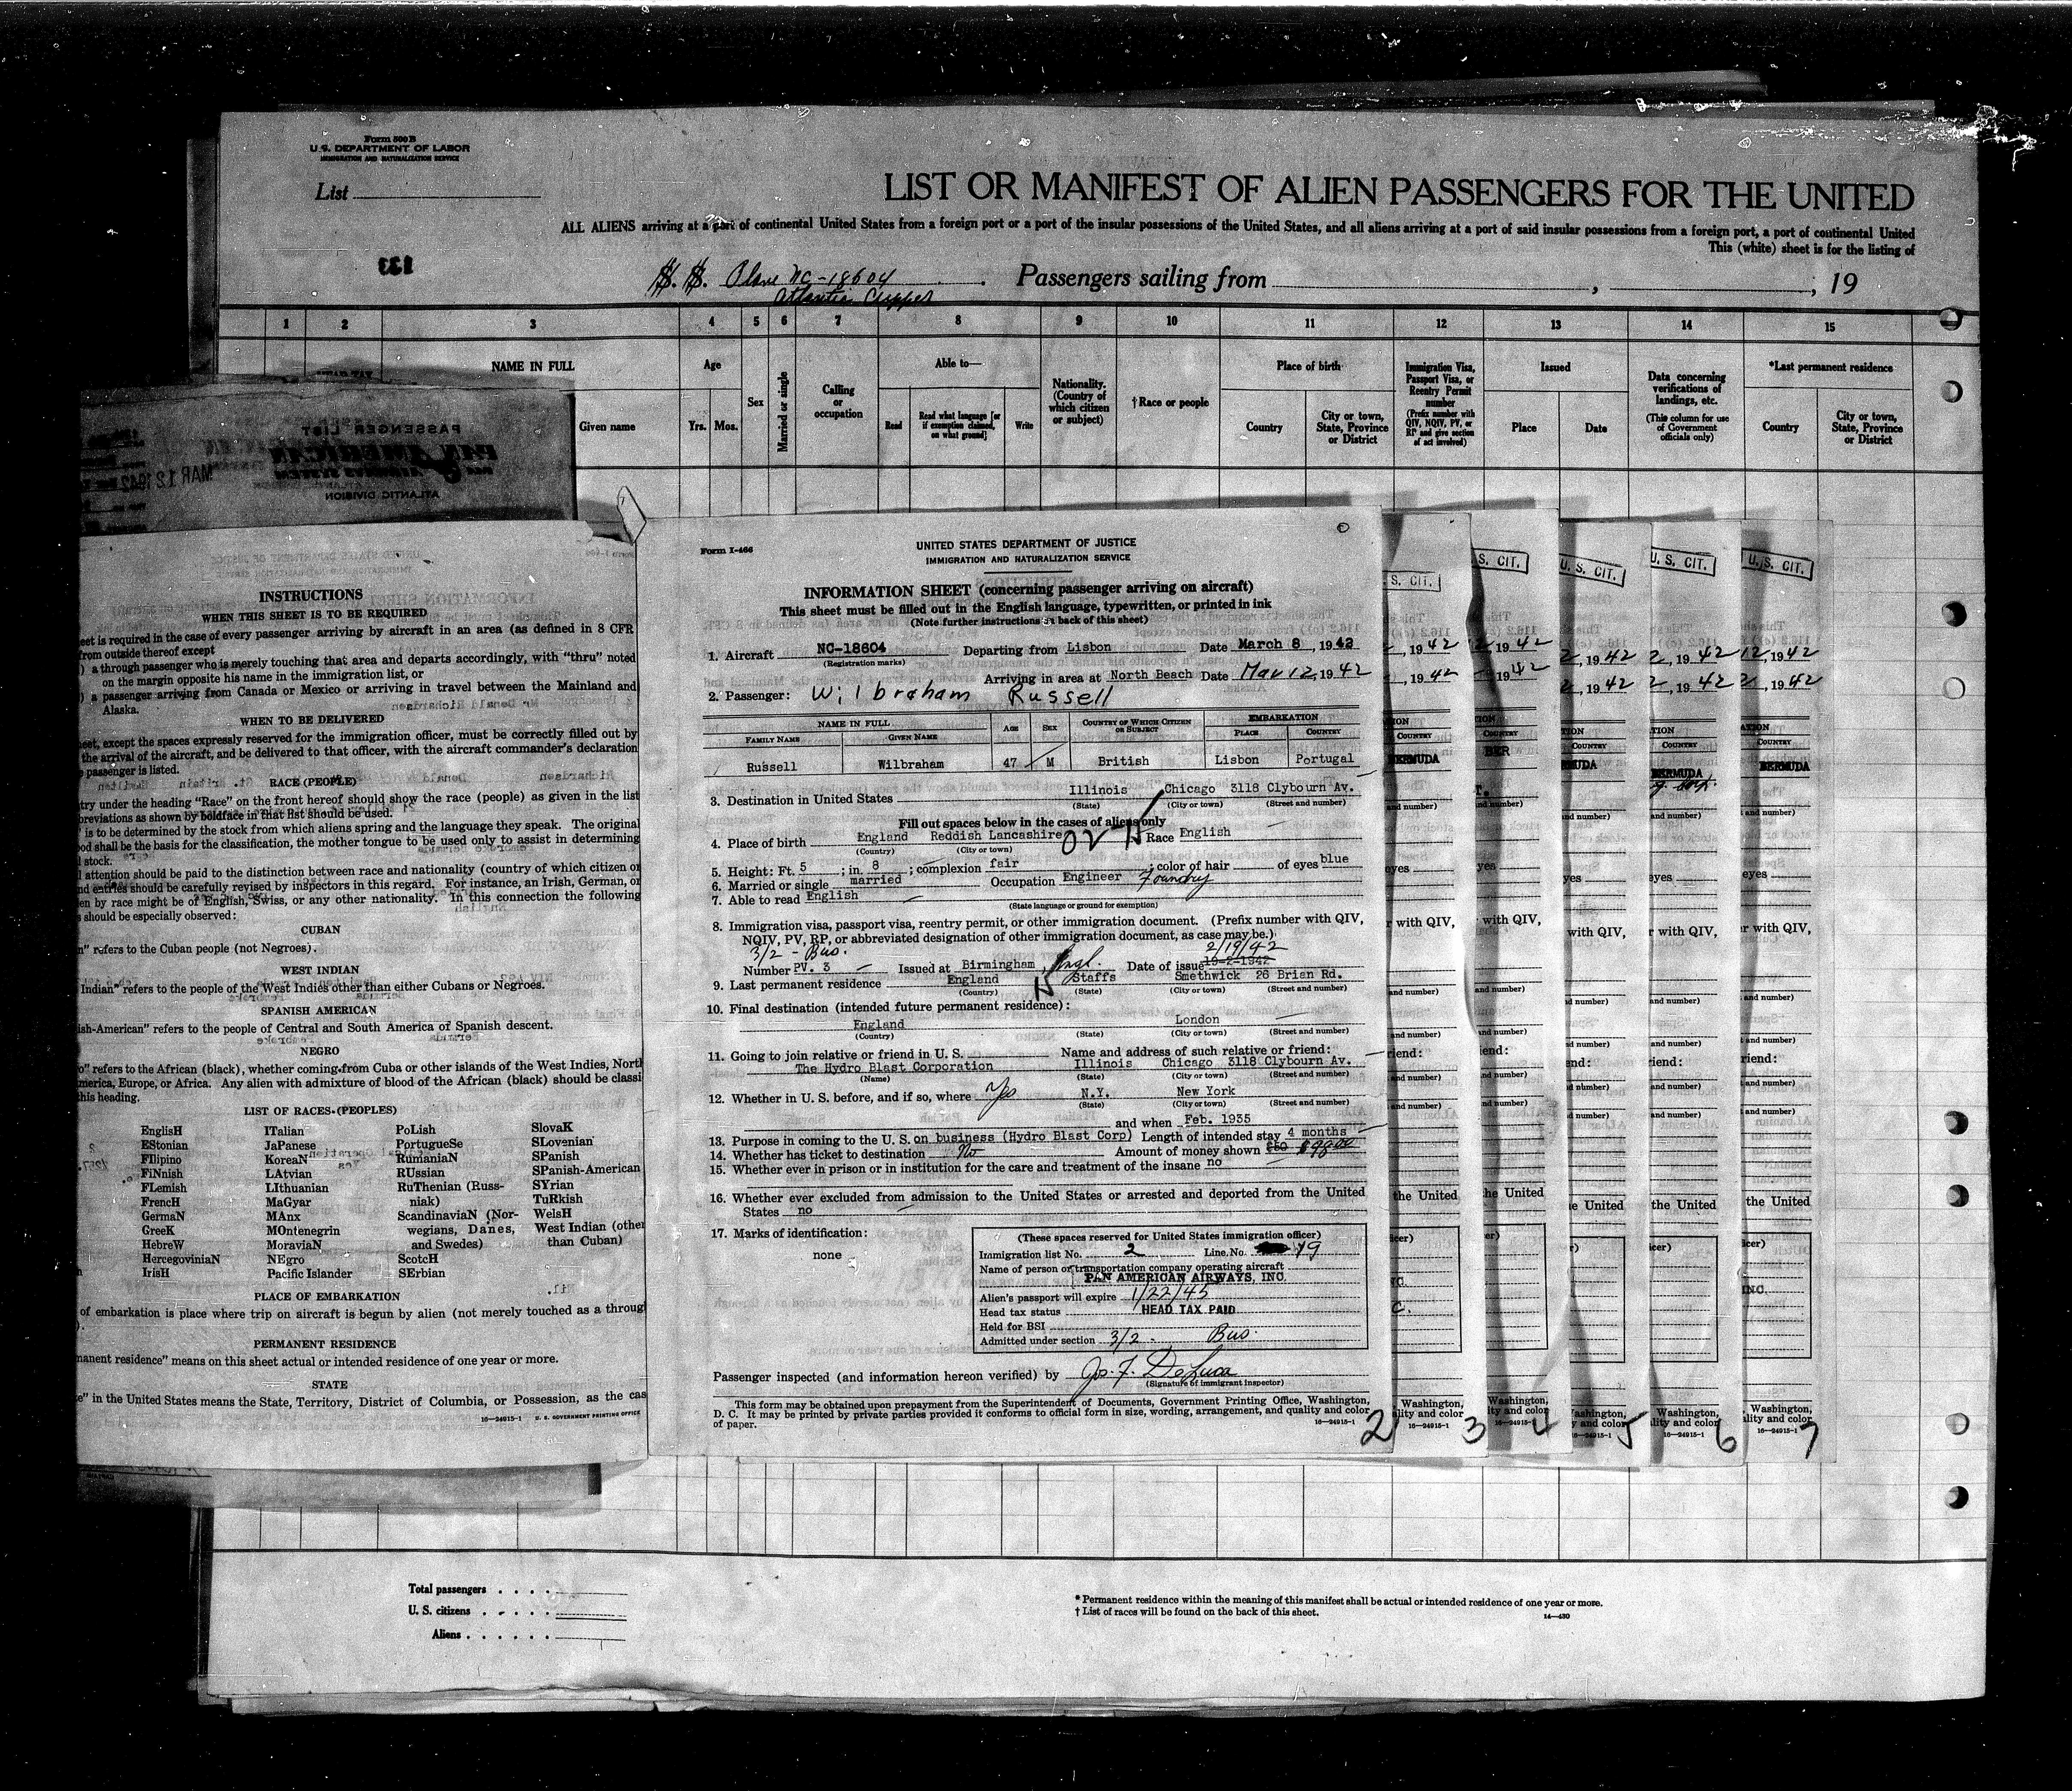 Form 500 B
U.S. DEPARTMENT OF LABOR
IMMIGRATION AND NATURALIZATION SERVICE
List
LIST OR MANIFEST OF ALIEN PASSENGERS FOR THE UNITED
ALL ALIENS arriving at a port of continental United States from a foreign port or a port of the insular possessions of the United States, and all aliens arriving at a port of said insular possessions from a foreign port, a port of continental United
This (white) sheet is for the listing of
133
S. S. Plane NC-18604 Passengers sailing from , , 19
Atlantic Clipper
1 2 3 4 5 6 7 8 9 10 11 12 13 14 15
NAME IN FULL
Given name
Age
Yrs. Mos.
Sex
Married or single
Calling or occupation
Able to—
Read
Read what language [or if exemption claimed, on what ground]
Write
Nationality. (Country of which citizen or subject)
†Race or people
Place of birth
Country
City or town, State, Province or District
Immigration Visa, Passport Visa, or Reentry Permit number
(Prefix number with QIV, NQIV, PV, or RP and give section of act involved)
Issued
Place
Date
Data concerning verifications of landings, etc.
(This column for use of Government officials only)
*Last permanent residence
Country
City or town, State, Province or District
PASSENGER LIST
PAN AMERICAN
ATLANTIC DIVISION
MAR 12 1942
INSTRUCTIONS
WHEN THIS SHEET IS TO BE REQUIRED
eet is required in the case of every passenger arriving by aircraft in an area (as defined in 8 CFR
from outside thereof except
) a through passenger who is merely touching that area and departs accordingly, with "thru" noted
on the margin opposite his name in the immigration list, or
) a passenger arriving from Canada or Mexico or arriving in travel between the Mainland and
Alaska.
WHEN TO BE DELIVERED
eet, except the spaces expressly reserved for the immigration officer, must be correctly filled out by
the arrival of the aircraft, and be delivered to that officer, with the aircraft commander's declaration
e passenger is listed.
RACE (PEOPLE)
try under the heading "Race" on the front hereof should show the race (people) as given in the list
breviations as shown by boldface in that list should be used.
" is to be determined by the stock from which aliens spring and the language they speak. The original
od shall be the basis for the classification, the mother tongue to be used only to assist in determining
l stock.
l attention should be paid to the distinction between race and nationality (country of which citizen or
nd entries should be carefully revised by inspectors in this regard. For instance, an Irish, German, or
en by race might be of English, Swiss, or any other nationality. In this connection the following
s should be especially observed:
CUBAN
n" refers to the Cuban people (not Negroes).
WEST INDIAN
Indian" refers to the people of the West Indies other than either Cubans or Negroes.
SPANISH AMERICAN
ish-American" refers to the people of Central and South America of Spanish descent.
NEGRO
o" refers to the African (black), whether coming from Cuba or other islands of the West Indies, North
merica, Europe, or Africa. Any alien with admixture of blood of the African (black) should be classi
this heading.
LIST OF RACES (PEOPLES)
EnglisH ITalian PoLish SlovaK
EStonian JaPanese PortugueSe SLovenian
FIlipino KoreaN RumaniaN SPanish
FiNnish LAtvian RUssian SPanish-American
FLemish LIthuanian RuThenian (Russ- SYrian
FrencH MaGyar niak) TuRkish
GermaN MAnx ScandinaviaN (Nor- WelsH
GreeK MOntenegrin wegians, Danes, West Indian (other
HebreW MoraviaN and Swedes) than Cuban)
HercegoviniaN NEgro ScotcH
IrisH Pacific Islander SErbian
PLACE OF EMBARKATION
of embarkation is place where trip on aircraft is begun by alien (not merely touched as a throug
).
PERMANENT RESIDENCE
nanent residence" means on this sheet actual or intended residence of one year or more.
STATE
e" in the United States means the State, Territory, District of Columbia, or Possession, as the cas
16—24915-1 U. S. GOVERNMENT PRINTING OFFICE
Form I-466
UNITED STATES DEPARTMENT OF JUSTICE
IMMIGRATION AND NATURALIZATION SERVICE
INFORMATION SHEET (concerning passenger arriving on aircraft)
This sheet must be filled out in the English language, typewritten, or printed in ink
(Note further instructions on back of this sheet)
1. Aircraft NC-18604 Departing from Lisbon Date March 8, 1942
(Registration marks)
Arriving in area at North Beach Date Mar 12, 1942
2. Passenger: Wilbraham Russell
NAME IN FULL AGE SEX COUNTRY OF WHICH CITIZEN OR SUBJECT EMBARKATION
FAMILY NAME GIVEN NAME PLACE COUNTRY
Russell Wilbraham 47 M British Lisbon Portugal
3. Destination in United States Illinois Chicago 3118 Clybourn Av.
(State) (City or town) (Street and number)
Fill out spaces below in the cases of aliens only
4. Place of birth England Reddish Lancashire Race English
(Country) (City or town)
5. Height: Ft. 5; in. 8; complexion fair; color of hair of eyes blue
6. Married or single married Occupation Engineer Foundry
7. Able to read English
(State language or ground for exemption)
8. Immigration visa, passport visa, reentry permit, or other immigration document. (Prefix number with QIV,
NQIV, PV, RP, or abbreviated designation of other immigration document, as case may be.)
3/2 - Bus. 2/19/42
Number PV. 3 Issued at Birmingham Engl. Date of issue 19-2-1942
9. Last permanent residence England Staffs Smethwick 26 Brian Rd.
(Country) (State) (City or town) (Street and number)
10. Final destination (intended future permanent residence):
England London
(Country) (State) (City or town) (Street and number)
11. Going to join relative or friend in U. S. Name and address of such relative or friend:
The Hydro Blast Corporation Illinois Chicago 3118 Clybourn Av.
(Name) (State) (City or town) (Street and number)
12. Whether in U. S. before, and if so, where Yes N.Y. New York
(State) (City or town) (Street and number)
and when Feb. 1935
13. Purpose in coming to the U. S. on business (Hydro Blast Corp) Length of intended stay 4 months
14. Whether has ticket to destination No Amount of money shown £50 $98.00
15. Whether ever in prison or in institution for the care and treatment of the insane no
16. Whether ever excluded from admission to the United States or arrested and deported from the United
States no
17. Marks of identification:
none
(These spaces reserved for United States immigration officer)
Immigration list No. 2 Line No. 19
Name of person or transportation company operating aircraft
PAN AMERICAN AIRWAYS, INC.
Alien's passport will expire 1/22/45
Head tax status HEAD TAX PAID
Held for BSI
Admitted under section 3/2 - Bus.
Passenger inspected (and information hereon verified) by Jos. F. DeLuca
(Signature of immigrant inspector)
This form may be obtained upon prepayment from the Superintendent of Documents, Government Printing Office, Washington,
D. C. It may be printed by private parties provided it conforms to official form in size, wording, arrangement, and quality and color
of paper.
16—24915-1
2 3 4 5 6 7
S. CIT. S. CIT. U. S. CIT. U. S. CIT. U. S. CIT.
BERMUDA BER MUDA BERMUDA BERMUDA
Total passengers
U. S. citizens
Aliens
* Permanent residence within the meaning of this manifest shall be actual or intended residence of one year or more.
† List of races will be found on the back of this sheet.
14—430